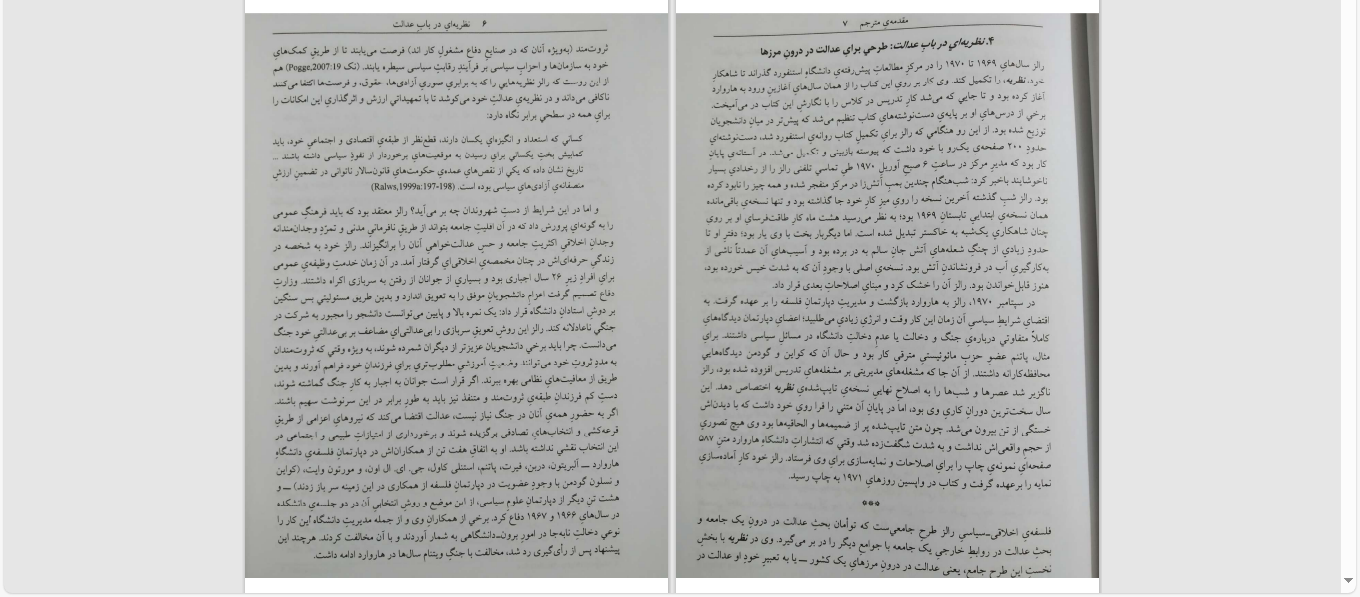 ۶ نظریه‌ای در باب عدالت
ثروت‌مند (به‌ویژه آنان که در صنایعِ دفاع مشغولِ کار اند) فرصت می‌یابند تا از طریقِ کمک‌هایِ
خود به سازمان‌ها و احزابِ سیاسی بر فرآیندِ رقابتِ سیاسی سیطره یابند. (نک Pogge,2007:19) هم
از این روست که رالز نظریه‌هایی را که به برابریِ صوریِ آزادی‌ها، حقوق، و فرصت‌ها اکتفا می‌کنند
ناکافی می‌داند و در نظریه‌یِ عدالتِ خود می‌کوشد تا با تمهیداتی ارزش و اثرگذاریِ این امکانات را
برایِ همه در سطحیِ برابر نگاه دارد:
کسانی که استعداد و انگیزه‌ایِ یکسان دارند، قطع‌نظر از طبقه‌یِ اقتصادی و اجتماعیِ خود، باید
کمابیش بختِ یکسانی برایِ رسیدن به موقعیت‌هایِ برخوردار از نفوذِ سیاسی داشته باشند ...
تاریخ نشان داده که یکی از نقص‌هایِ عمده‌یِ حکومت‌هایِ قانون‌سالار ناتوانی در تضمینِ ارزشِ
منصفانه‌یِ آزادی‌هایِ سیاسی بوده است. (Ralws,1999a:197-198)
و اما در این شرایط از دستِ شهروندان چه بر می‌آید؟ رالز معتقد بود که باید فرهنگِ عمومی
را به گونه‌ای پرورش داد که در آن اقلیتِ جامعه بتواند از طریقِ نافرمانیِ مدنی و تمرّدِ وجدان‌مندانه
وجدانِ اخلاقیِ اکثریتِ جامعه و حسِ عدالت‌خواهیِ آنان را برانگیزاند. رالز خود به شخصه در
زندگیِ حرفه‌ای‌اش در چنان مخمصه‌یِ اخلاقی‌ای گرفتار آمد. در آن زمان خدمتِ وظیفه‌یِ عمومی
برایِ افرادِ زیرِ ۲۶ سال اجباری بود و بسیاری از جوانان از رفتن به سربازی اکراه داشتند. وزارتِ
دفاع تصمیم گرفت اعزامِ دانشجویانِ موفق را به تعویق اندازد و بدین طریق مسئولیتی بس سنگین
بر دوشِ استادانِ دانشگاه قرار داد: یک نمره بالا و پایین می‌توانست دانشجو را مجبور به شرکت در
جنگی ناعادلانه کند. رالز این روشِ تعویقِ سربازی را بی‌عدالتی‌ای مضاعف بر بی‌عدالتیِ خودِ جنگ
می‌دانست. چرا باید برخی دانشجویان عزیزتر از دیگران شمرده شوند، به ویژه وقتی که ثروت‌مندان
به مددِ ثروتِ خود می‌توانند وضعیتِ آموزشیِ مطلوب‌تری برایِ فرزندانِ خود فراهم آورند و بدین
طریق از معافیت‌هایِ نظامی بهره ببرند. اگر قرار است جوانان به اجبار به کارِ جنگ گماشته شوند،
دستِ کم فرزندانِ طبقه‌یِ ثروت‌مند و متنفذ نیز باید به طورِ برابر در این سرنوشت سهیم باشند.
اگر به حضورِ همه‌یِ آنان در جنگ نیاز نیست، عدالت اقتضا می‌کند که نیروهایِ اعزامی از طریقِ
قرعه‌کشی و انتخاب‌هایِ تصادفی برگزیده شوند و برخورداری از امتیازاتِ طبیعی و اجتماعی در
این انتخاب نقشی نداشته باشد. او به اتفاقِ هفت تن از همکاران‌اش در دپارتمانِ فلسفه‌یِ دانشگاهِ
هاروارد ــ آلبریتون، دربن، فیرت، پاتنم، استنلی کاول، جی. ای. ال اون، و مورتون وایت، (کواین
و نسلون گودمن با وجودِ عضویت در دپارتمانِ فلسفه از همکاری در این زمینه سر باز زدند) ــ و
هشت تنِ دیگر از دپارتمانِ علومِ سیاسی، از این موضع و روشِ انتخابیِ آن در دو جلسه‌یِ دانشکده
در سال‌هایِ ۱۹۶۶ و ۱۹۶۷ دفاع کرد. برخی از همکارانِ وی و از جمله مدیریتِ دانشگاه این کار را
نوعی دخالتِ نابه‌جا در امورِ برون‌ـ‌دانشگاهی به شمار آوردند و با آن مخالفت کردند. هرچند این
پیشنهاد پس از رأی‌گیری رد شد، مخالفت با جنگِ ویتنام سال‌ها در هاروارد ادامه داشت.
مقدمه‌ی مترجم ۷
۴. نظریه‌ای در بابِ عدالت: طرحی برای عدالت در درونِ مرزها
رالز سال‌هایِ ۱۹۶۹ تا ۱۹۷۰ را در مرکزِ مطالعاتِ پیش‌رفته‌یِ دانشگاهِ استنفورد گذراند تا شاهکارِ
خود، نظریه، را تکمیل کند. وی کار بر رویِ این کتاب را از همان سال‌هایِ آغازینِ ورود به هاروارد
آغاز کرده بود و تا جایی که می‌شد کارِ تدریس در کلاس را با نگارشِ این کتاب در می‌آمیخت.
برخی از درس‌هایِ او بر پایه‌یِ دست‌نوشته‌هایِ کتاب تنظیم می‌شد که پیش‌تر در میانِ دانشجویان
توزیع شده بود. از این رو هنگامی که رالز برایِ تکمیلِ کتاب روانه‌یِ استنفورد شد، دست‌نوشته‌ایِ
حدودِ ۲۰۰ صفحه‌یِ یک‌رو با خود داشت که پیوسته بازبینی و تکمیل می‌شد. در آستانه‌یِ پایانِ
کار بود که مدیرِ مرکز در ساعتِ ۶ صبحِ آوریلِ ۱۹۷۰ طیِ تماسی تلفنی رالز را از رخدادیِ بسیار
ناخوشایند باخبر کرد: شب‌هنگام چندین بمبِ آتش‌زا در مرکز منفجر شده و همه چیز را نابود کرده
بود. رالز شبِ گذشته آخرین نسخه را رویِ میزِ کارِ خود جا گذاشته بود و تنها نسخه‌یِ باقی‌مانده
همان نسخه‌یِ ابتداییِ تابستانِ ۱۹۶۹ بود؛ به نظر می‌رسید هشت ماه کارِ طاقت‌فرسایِ او بر رویِ
چنان شاهکاری یک‌شبه به خاکستر تبدیل شده است. اما دیگربار بخت با وی یار بود؛ دفترِ او تا
حدودِ زیادی از چنگِ شعله‌هایِ آتش جانِ سالم به در برده بود و آسیب‌هایِ آن عمدتاً ناشی از
به‌کارگیریِ آب در فرونشاندنِ آتش بود. نسخه‌یِ اصلی با وجودِ آن که به شدت خیس خورده بود،
هنوز قابل‌خواندن بود. رالز آن را خشک کرد و مبنایِ اصلاحاتِ بعدی قرار داد.
در سپتامبر ۱۹۷۰، رالز به هاروارد بازگشت و مدیریتِ دپارتمانِ فلسفه را بر عهده گرفت. به
اقتضایِ شرایطِ سیاسیِ آن زمان این کار وقت و انرژیِ زیادی می‌طلبید؛ اعضایِ دپارتمان دیدگاه‌هایِ
کاملاً متفاوتی درباره‌یِ جنگ و دخالت یا عدمِ دخالتِ دانشگاه در مسائلِ سیاسی داشتند. برایِ
مثال، پاتنم عضوِ حزبِ مائوئیستیِ مترقی کار بود و حال آن که کواین و گودمن دیدگاه‌هایی
محافظه‌کارانه داشتند. از آن جا که مشغله‌هایِ مدیریتی بر مشغله‌هایِ تدریس افزوده شده بود، رالز
ناگزیر شد عصرها و شب‌ها را به اصلاحِ نهاییِ نسخه‌یِ تایپ‌شده‌یِ نظریه اختصاص دهد. این
سال سخت‌ترین دورانِ کاریِ وی بود، اما در پایانِ آن متنی را فرا رویِ خود داشت که با دیدن‌اش
خستگی از تن بیرون می‌شد. چون متنِ تایپ‌شده پر از ضمیمه‌ها و الحاقیه‌ها بود وی هیچ تصوریِ
از حجمِ واقعی‌اش نداشت و به شدت شگفت‌زده شد وقتی که انتشاراتِ دانشگاهِ هاروارد متنِ ۵۸۷
صفحه‌ایِ نمونه‌یِ چاپ را برایِ اصلاحات و نمایه‌سازی برایِ وی فرستاد. رالز خود کارِ آماده‌سازیِ
نمایه را برعهده گرفت و کتاب در واپسین روزهایِ ۱۹۷۱ به چاپ رسید.
***
فلسفه‌یِ اخلاقی‌ـ‌سیاسیِ رالز طرحِ جامعی‌ست که توأمان بحثِ عدالت در درونِ یک جامعه و
بحثِ عدالت در روابطِ خارجیِ یک جامعه با جوامعِ دیگر را در بر می‌گیرد. وی در نظریه با بخشِ
نخستِ این طرحِ جامع، یعنی عدالت در درونِ مرزهایِ یک کشور ــ یا به تعبیرِ خودِ او عدالت در